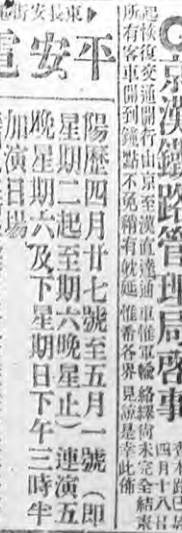 京漢鐵路管理局啓事
四月十八日
起恢復交通開行由京至漢直達通車惟軍輸絡繹尚未完全結束
所有客車開到鐘點不免稍有躭延惟希各界見諒是幸此佈
東長安街
平安電
陽歷四月廿七號至五月一號（即
星期二起至期六晚星止）連演五
晚星期六及下星期日下午三時半
加演日場